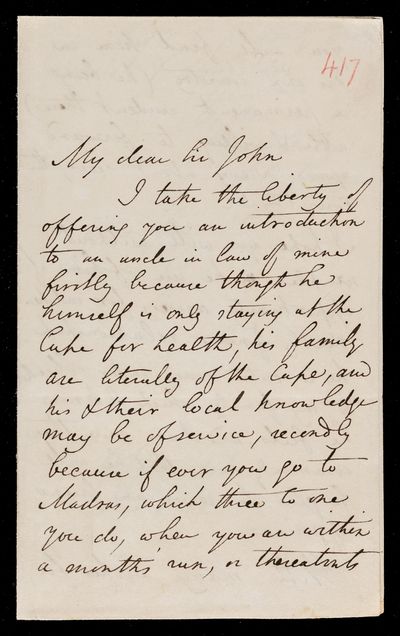 417
My dear Sir John
I take the liberty of
offering you an introduction
to an uncle in law of mine
firstly because though he
himself is only staying at the
Cape for health, his family
are literally of the Cape, and
his & their local knowledge
may be of service, secondly
because if ever you go to
Madras, which three to one
you do, when you are within
a month's run, or thereabouts